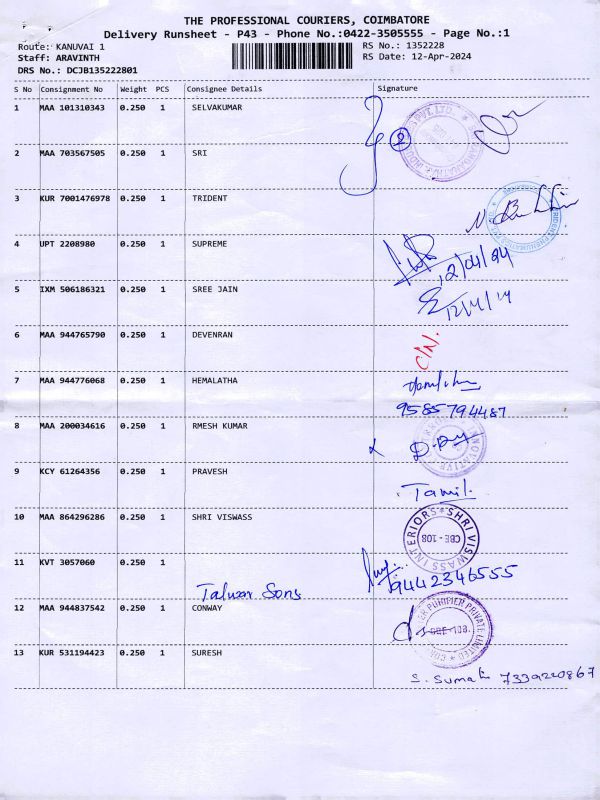 THE PROFESSIONAL COURIERS, COIMBATORE
Delivery Runsheet - P43 - Phone No.:0422-3505555 - Page No.:1
Route: KANUVAI 1 RS No.: 1352228
Staff: ARAVINTH RS Date: 12-Apr-2024
DRS No.: DCJB135222801
S No Consignment No Weight PCS Consignee Details Signature
1 MAA 101310343 0.250 1 SELVAKUMAR
2 MAA 703567505 0.250 1 SRI
3 KUR 7001476978 0.250 1 TRIDENT
4 UPT 2208980 0.250 1 SUPREME
12/04/24
5 IXM 506186321 0.250 1 SREE JAIN
12/4/24
6 MAA 944765790 0.250 1 DEVENRAN
C/N.
7 MAA 944776068 0.250 1 HEMALATHA
9585794487
8 MAA 200034616 0.250 1 RMESH KUMAR
9 KCY 61264356 0.250 1 PRAVESH
Tamil.
10 MAA 864296286 0.250 1 SHRI VISWASS
SHRI VISWASS INTERIORS CBE - 108
11 KVT 3057060 0.250 1
Talwar Sons 9442346555
12 MAA 944837542 0.250 1 CONWAY
PURIFIER PRIVATE LIMITED CBE-108.
13 KUR 531194423 0.250 1 SURESH
S. Sumathi 7339220867